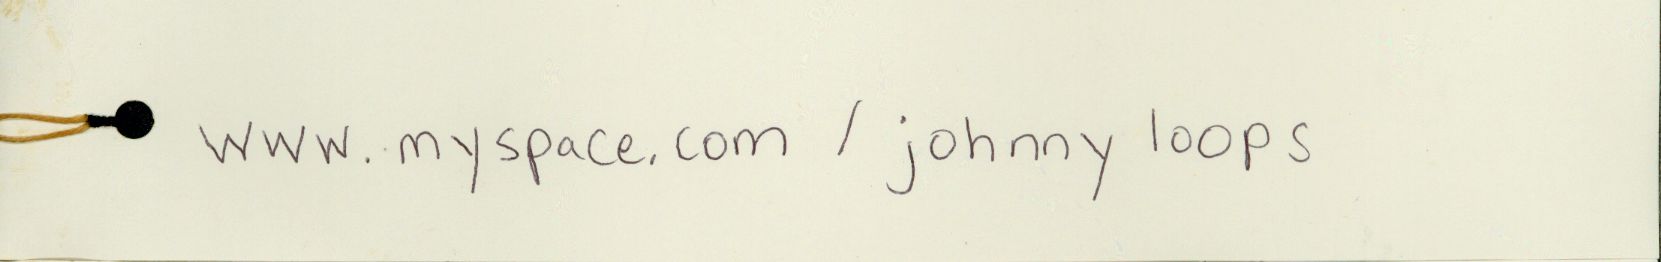 www.myspace.com / johnny loops